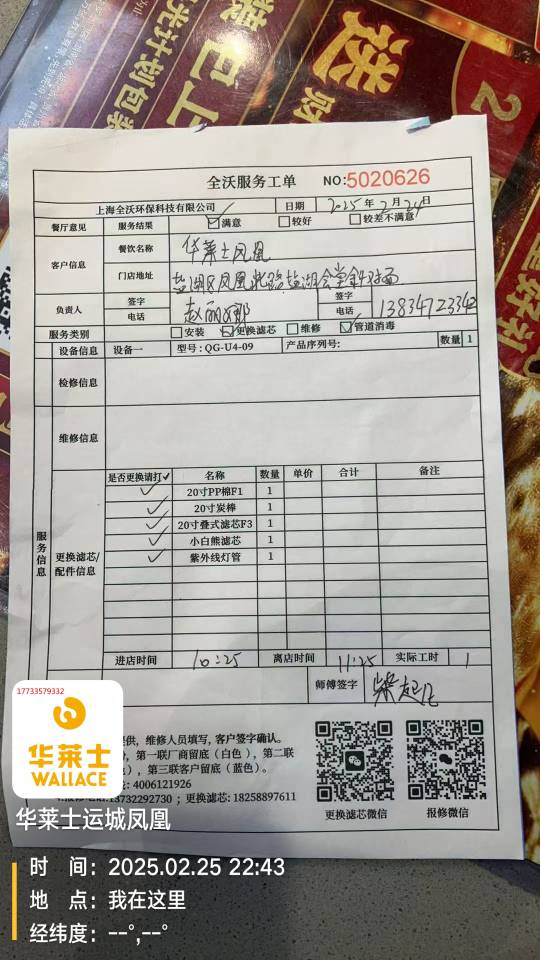 装包上
光计划包装
送
财
2
全沃服务工单 NO:5020626
上海全沃环保科技有限公司 日期 2025年2月24日
餐厅意见 服务结果 ☑满意 □较好 □较差不满意
客户信息 餐饮名称 华莱士凤凰
门店地址 盐湖区凤凰北路盐湖会堂斜对面
负责人 签字 赵丽娜 签字
电话 电话 13834723342
服务类别 □安装 ☑更换滤芯 □维修 ☑管道消毒
设备信息 设备一 型号:QG-U4-09 产品序列号: 数量 1
检修信息
维修信息
服务信息
更换滤芯/配件信息
是否更换请打✓ 名称 数量 单价 合计 备注
✓ 20寸PP棉F1 1
✓ 20寸炭棒 1
✓ 20寸叠式滤芯F3 1
✓ 小白熊滤芯 1
✓ 紫外线灯管 1
进店时间 10:25 离店时间 11:25 实际工时 1
师傅签字
提供，维修人员填写, 客户签字确认。
第一联厂商留底（白色），第二联
，第三联客户留底（蓝色）。
: 4006121926
13732292730；更换滤芯: 18258897611
更换滤芯微信 报修微信
17733579332
华莱士
WALLACE
华莱士运城凤凰
时 间：2025.02.25 22:43
地 点：我在这里
经纬度：--°,--°